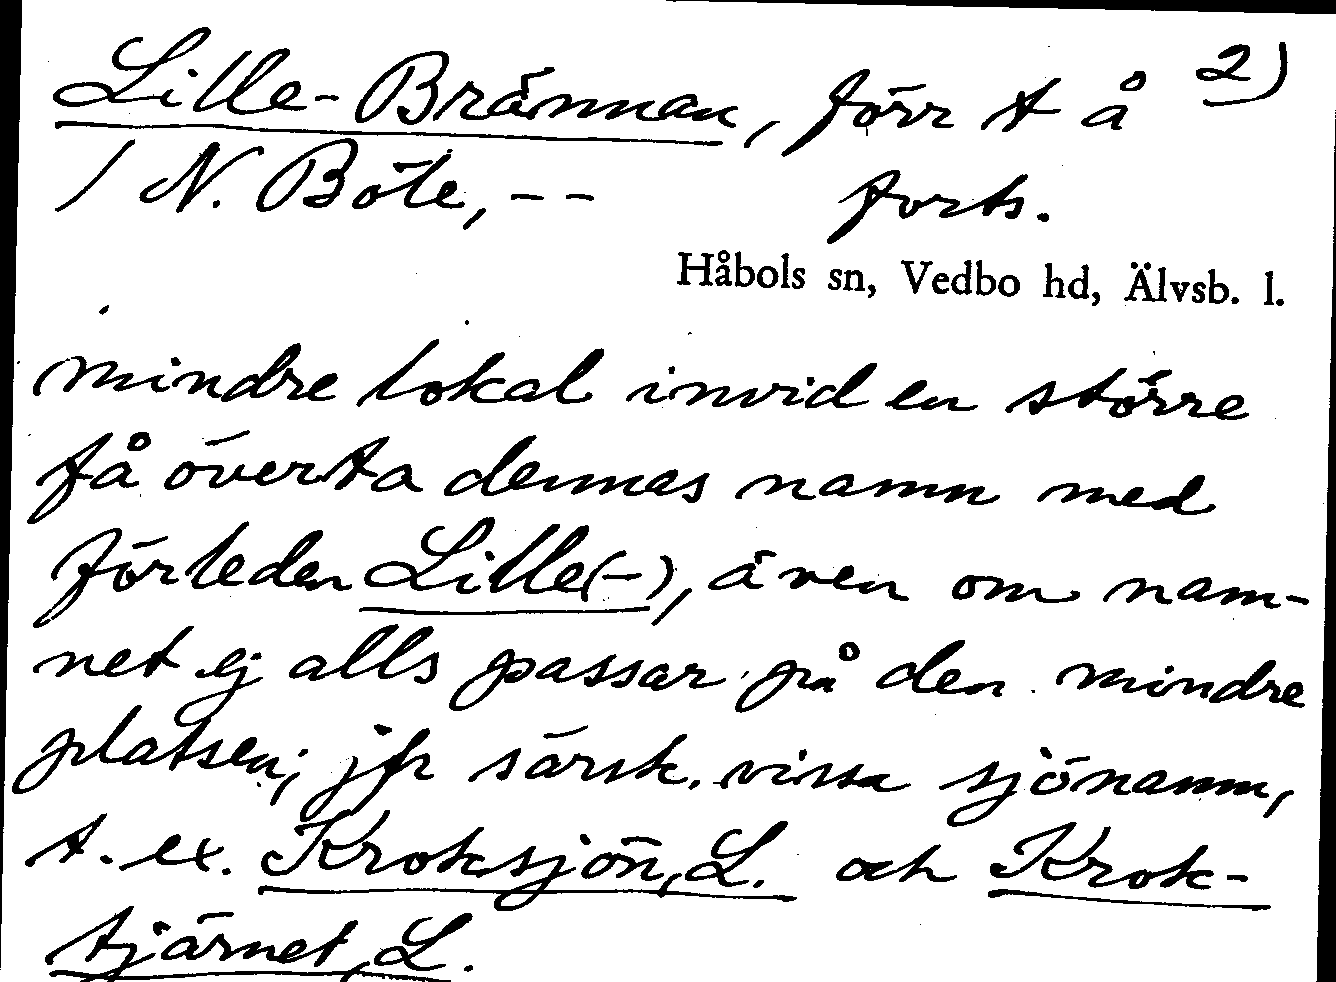 Lille-Brännan, förr t å 2)
/ N. Böle, -- forts.
Håbols sn, Vedbo hd, Älvsb. l.
mindre lokal invid en större
få överta dennes namn med
förleden Lille(-), även om nam-
net ej alls passar på den mindre
platsen; jfr särsk. vissa sjönamn,
t. ex. Kroksjön, L. och Krok-
tjärnet, L.